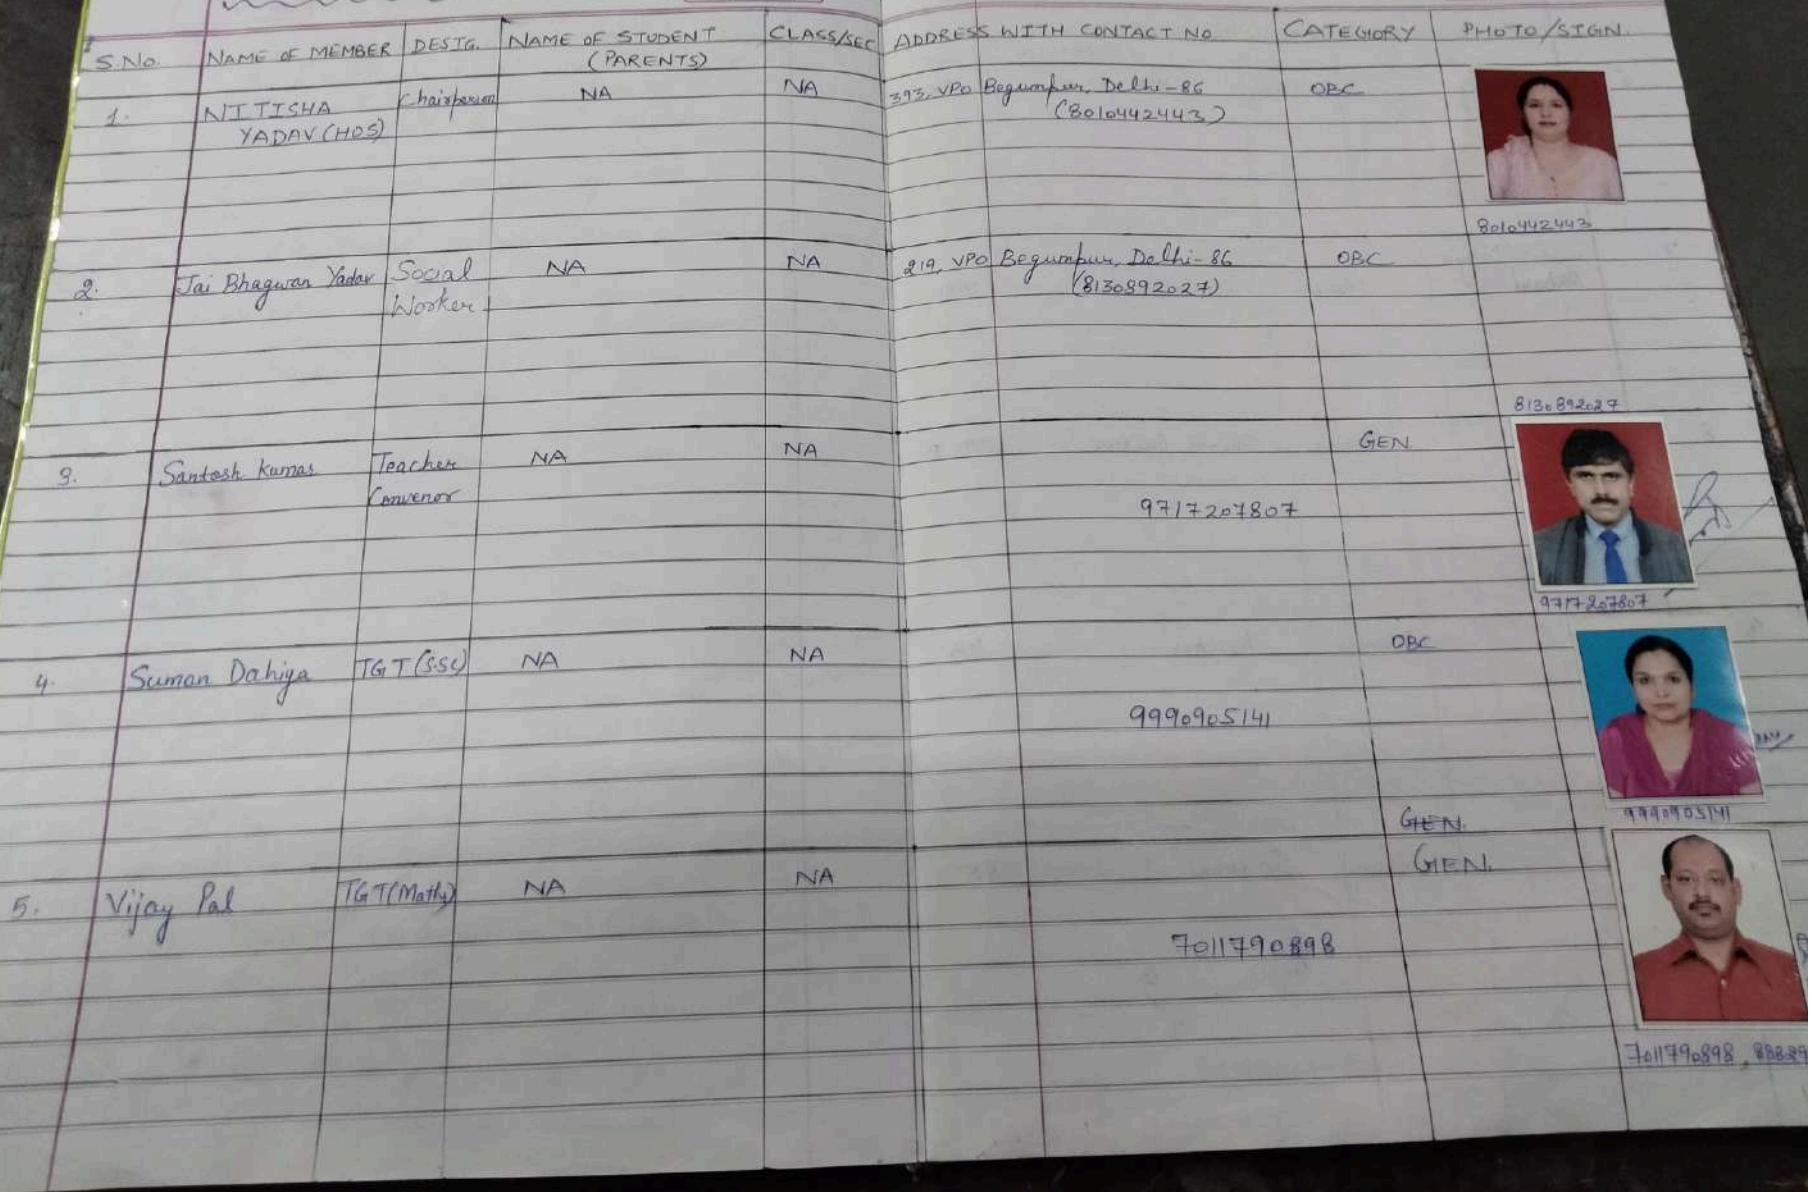 S.No. NAME OF MEMBER DESIG. NAME OF STUDENT (PARENTS) CLASS/SEC ADDRESS WITH CONTACT NO CATEGORY PHOTO/SIGN.
1. NITISHA YADAV(HOS) Chairperson NA NA 393, VPO Begumpur, Delhi-86 (8010442443) OBC
8010442443
2. Jai Bhagwan Yadav Social Worker NA NA 219, VPO Begumpur, Delhi-86 (8130892027) OBC
8130892027
3. Santosh Kumar Teacher Convenor NA NA 9717207807 GEN
9717207807
4. Suman Dahiya TGT(S.Sc) NA NA 9990905141 OBC
9990905141
GEN.
5. Vijay Pal TGT(Maths) NA NA 7011790898 GEN.
7011790898,